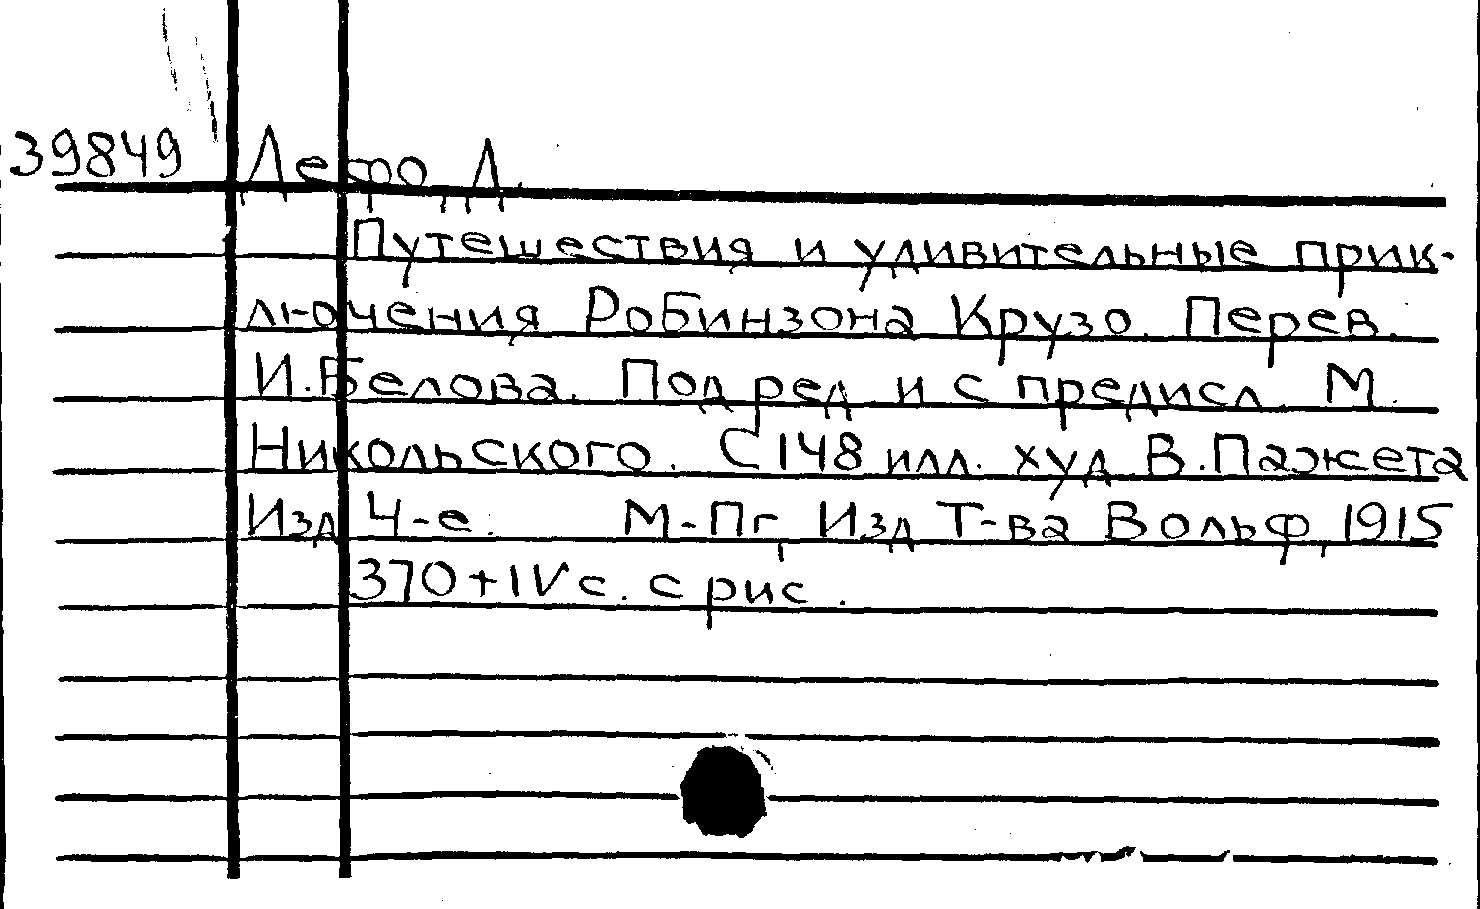 39849 Дефо, Д.
Путешествия и удивительные прик-
лючения Робинзона Крузо. Перев.
И. Белова. Под ред. и с предисл. М.
Никольского. С 148 илл. худ. В. Пажета
Изд. 4-е. М.-Пг, Изд. Т-ва Вольф, 1915
370+IV с. с рис.